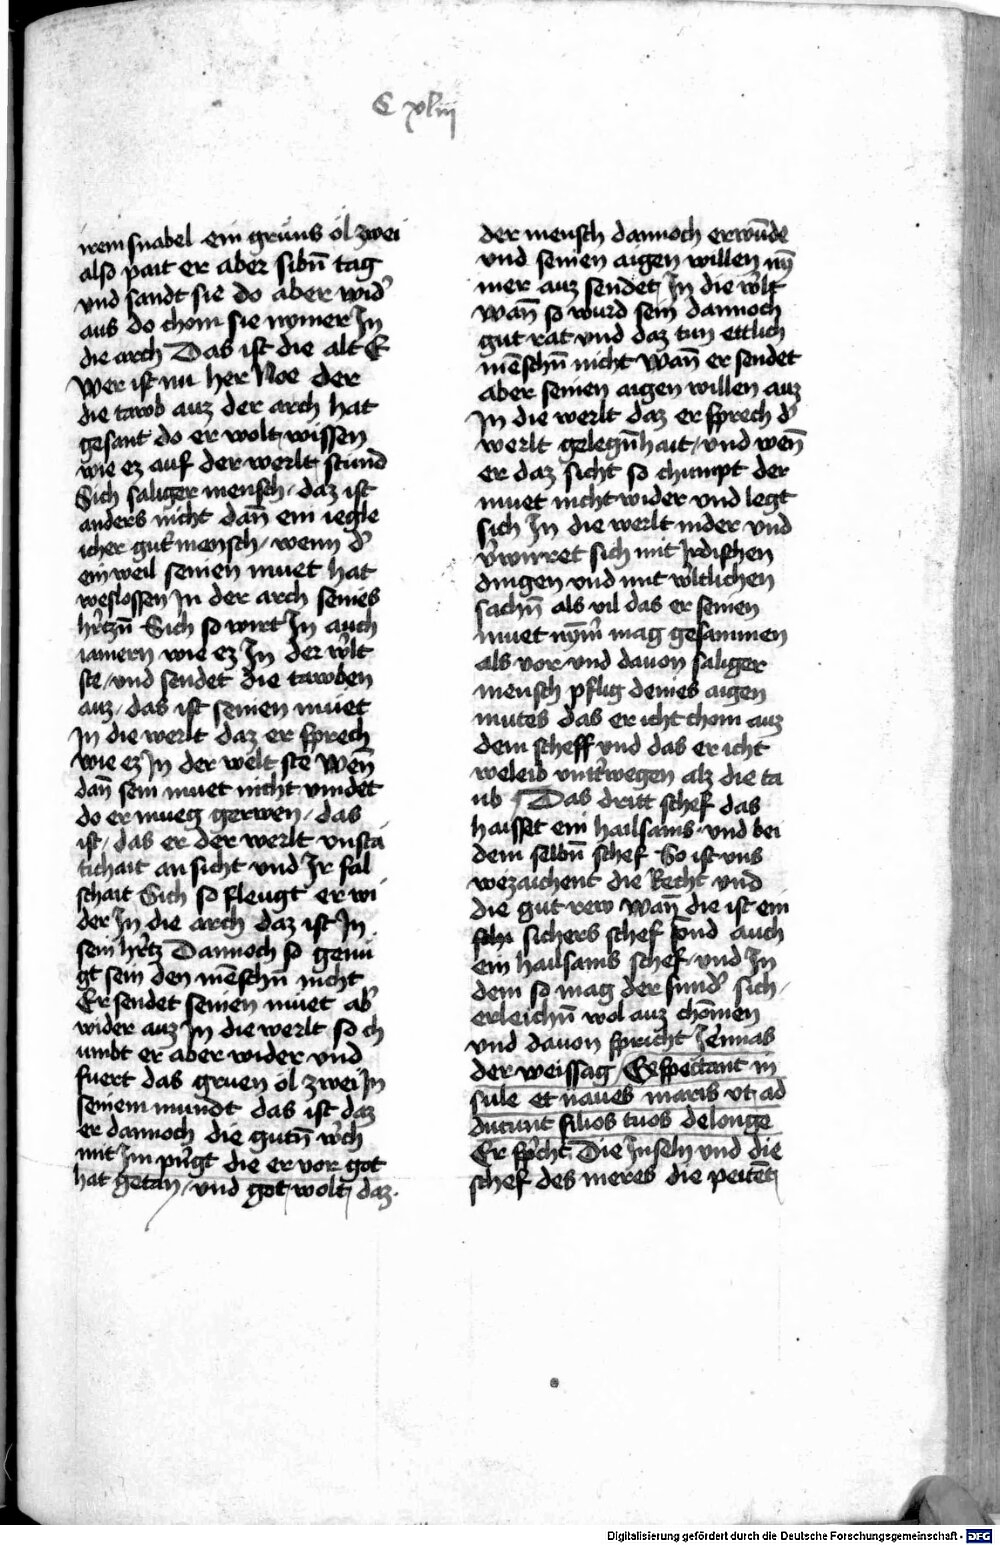 C xliii
irem snabel ein gruns ol zwei
also pait er aber sibn̄ tag
vnd sandt sie do aber wid͛
aus do chom sie nymer In
die arch Das ist die alt E
Wer ist nu her Noe der
die tawb auz der arch hat
gesant do er wolt wissen
wie ez auf der werlt stund
Sich saliger mensch / daz ist
anders nicht dan̄ ein iegle
icher gut mensch / wenn d͛
ein weil seinen muet hat
weslossen In der arch seines
h͛tzn̄ Sich so wirt In auch
iamern wie ez In der w͛lt
ste / vnd sendet die tawben
auz / das ist seinen muet
In die werlt daz er sprech
wie ez In der welt ste Wen̄
dan̄ sein muet nicht vindet
do er mueg gerwen / das
ist / das er der werlt vnstä
tichait an sicht vnd Ir fal
schait Sich so fleugt er wi
der In die arch daz ist In
sein h͛tz Dannoch so genu
gt sein den mēschn̄ nicht
Er sendet seinen muet ab͛
wider auz In die werlt so ch
umbt er aber wider vnd
fuert das gruen ol zwei In
seinem mundt das ist daz
er dannoch die gutn̄ w͛ch
mit Im p͛ngt die er vor got
hat getan / vnd got wolt daz
der mensch dannoch erwūde
vnd seinen aigen willen nȳ
mer auz sendet In die w͛lt
Wan̄ so wurd sein dannoch
gut rat vnd daz tun ettlich
mēschn̄ nicht Wan̄ er sendet
aber seinen aigen willen auz
In die werlt daz er sprech d͛
werlt gelegn̄hait / vnd wen̄
er daz sicht so chumpt der
muet nicht wider vnd legt
sich In die werlt nider vnd
v͛wirret sich mit Irdischen
dingen vnd mit w͛ltlichen
sachn̄ als vil das er seinen
muet nym̄͛ mag gesammen
als vor vnd dauon saliger
mensch pflig deines aigen
mutes das er icht chom auz
dem scheff vnd das er icht
weleib vnt͛wegen alz die ta
ub Das dritt schef das
haisset ein hailsams vnd bei
dem selbn̄ schef So ist vns
wezaichent die Recht vnd
die gut rew Wan̄ die ist ein
sichers schef vnd auch
ein hailsams schef vnd In
dem so mag der sund͛ sich
erleichn̄ wol auz chōmen
vnd dauon spricht
der weissag / Exspectant in
sule et naues maris vt ad
ducunt filios tuos delonge
Er sp͛cht Die Inseln vnd die
schef des meres die peitēt
Digitalisierung gefördert durch die Deutsche Forschungsgemeinschaft - DFG